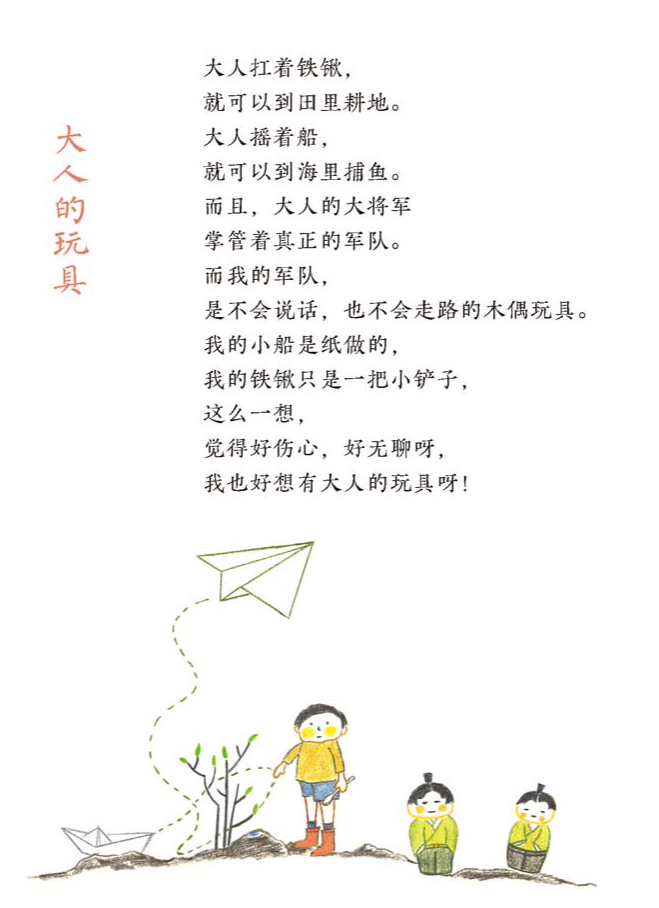 大人的玩具
大人扛着铁锹，
就可以到田里耕地。
大人摇着船，
就可以到海里捕鱼。
而且，大人的大将军
掌管着真正的军队。
而我的军队，
是不会说话，也不会走路的木偶玩具。
我的小船是纸做的，
我的铁锹只是一把小铲子，
这么一想，
觉得好伤心，好无聊呀，
我也好想有大人的玩具呀！